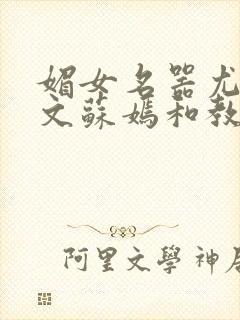 媚女名器尤
文蘇媽和教
阿里文學神居